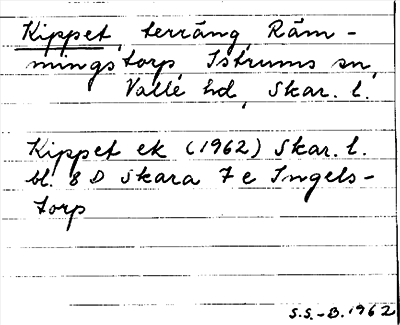 Kippet, terräng, Räm-
mingstorp, Istrums sn,
Valle hd, Skar. l.
Kippet ek (1962) Skar. l.
bl. 8 D Skara 7 e Ingels-
torp
S.S.-B. 1962